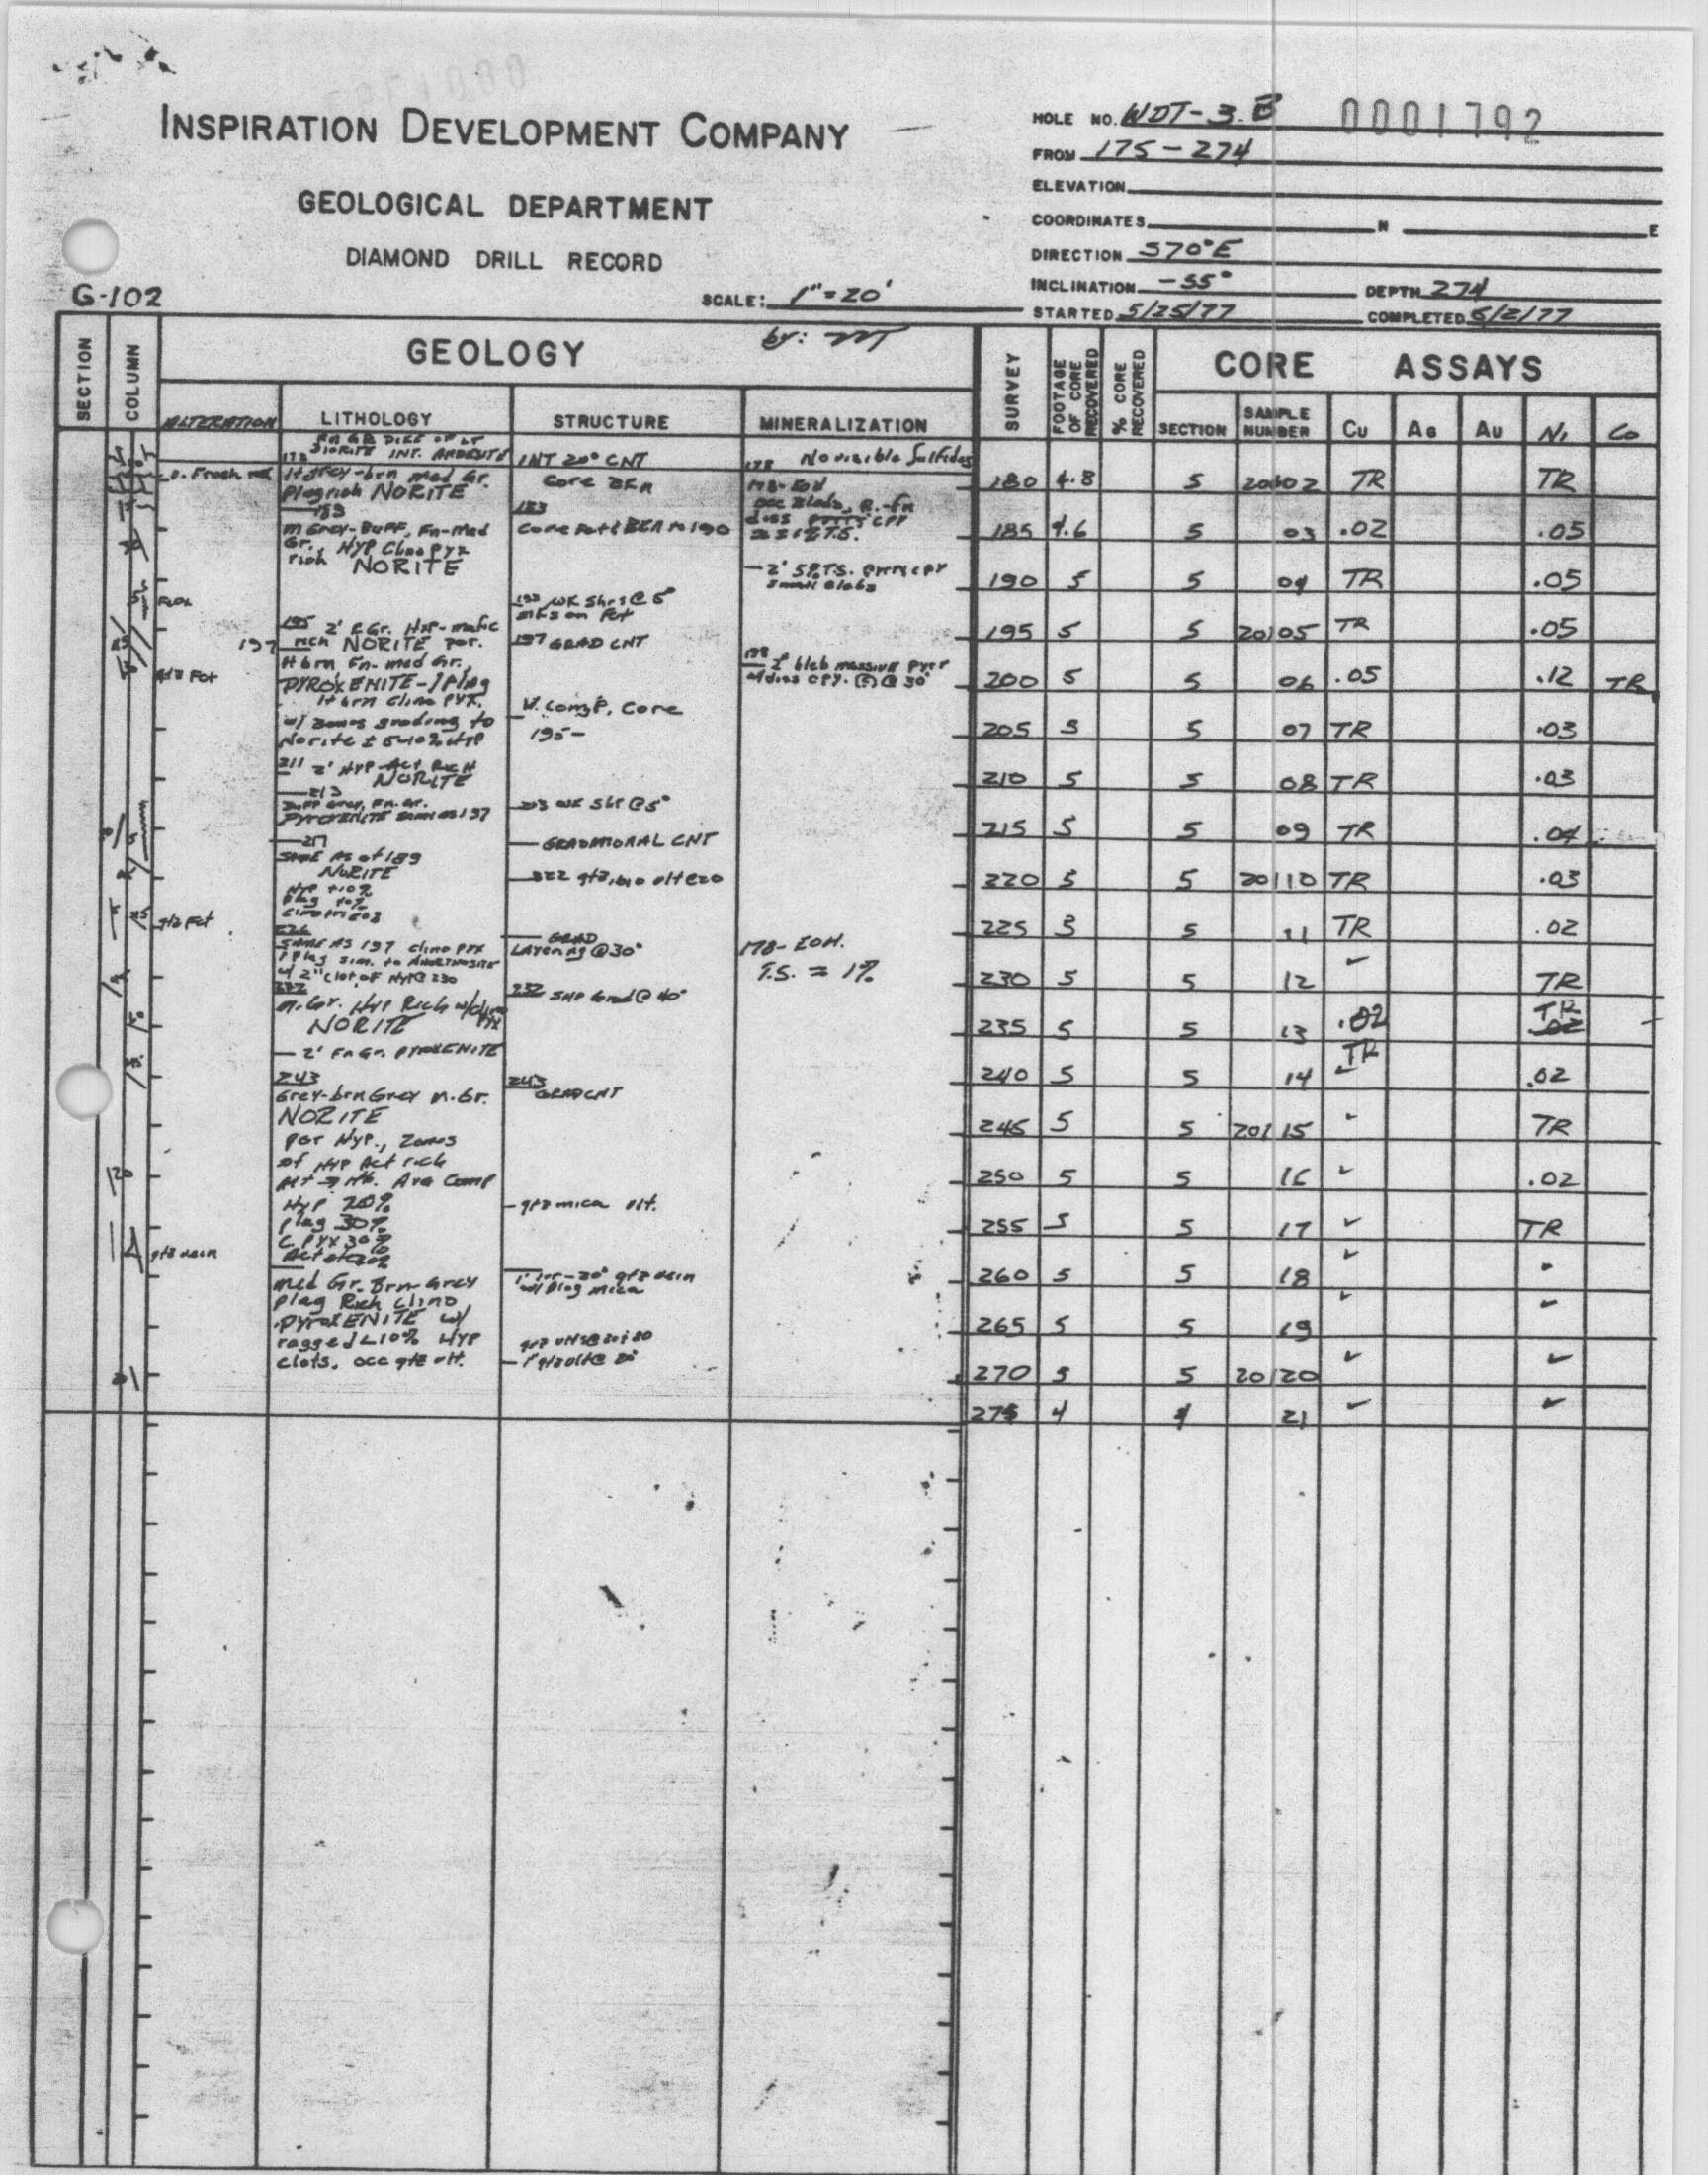 INSPIRATION DEVELOPMENT COMPANY
GEOLOGICAL DEPARTMENT
DIAMOND DRILL RECORD
G-102
SCALE: 1"=20'
HOLE NO. WDT-3.B 0001792
FROM 175-274
ELEVATION
COORDINATES N E
DIRECTION S70°E
INCLINATION -55° DEPTH 274
STARTED 5/25/77 COMPLETED 6/2/77
by:
SECTION COLUMN GEOLOGY SURVEY FOOTAGE OF CORE RECOVERED % CORE RECOVERED CORE ASSAYS
ALTERATION LITHOLOGY STRUCTURE MINERALIZATION SECTION SAMPLE NUMBER Cu AG AU Ni Co
Fn GR DIKE OF LT
178 DIORITE INT. ANDESITE
lt grey-brn med Gr.
Plagrich NORITE
183
m Grey-Buff, Fn-Med
Gr., HYP Clino PYX
rich NORITE
195 2' C Gr. HYP-mafic
197 rich NORITE por.
lt brn Fn-med Gr.,
PYROXENITE-1 Plag
lt brn clino PYX.
w/ zones grading to
Norite ± 5-10% HYP
211 2' HYP-Act RICH
NORITE
213
Buff Grey, Fn. Gr.
PYROXENITE same as 197
217
SAME AS at 189
NORITE
HYP +10%
plag 10%
226
SAME AS 197 clino PYX
1 plag sim. to ANORTHOSITE
w/ 2" clot of HYP@ 230
232
m.Gr. HYP Rich w/clino PYX
NORITE
— 2' Fn Gr. PYROXENITE
243
Grey-brn Grey m.Gr.
NORITE
por HYP., Zones
of HYP Act rich
Avg Comp
HYP 20%
plag 30%
C PYX 30%
Med Gr. Brn-Grey
plag Rich Clino
PYROXENITE w/
ragged <10% HYP
clots. occ qtz vlt.
D. Fresh
qtz Fct
qtz Fct
qtz vein
INT 20° CNT
Core BKN
183
Core Part BKN to 190
193 WK Shrs @ 5°
on Fct
197 GRAD CNT
V. Comp. Core
195-
213 WK Shr @ 5°
— GRADATIONAL CNT
— 222 qtz, bio vlt @20
— GRAD
Layering @30°
232 SHP Grad @ 40°
243
GRAD CNT
- qtz mica vlt.
20° qtz vein
w/ plag mica
178 No visible Sulfides
178-EOH
occ Blebs, R.-Fn
diss PYRR CPY
T.S.
— 2' 5% T.S. PYRR CPY
small Blebs
198
— 2" bleb massive PYRR
w/diss CPY. @ 30°
178- EOH.
T.S. = 1%
180 4.8 5 20102 TR TR
185 4.6 5 03 .02 .05
190 5 5 04 TR .05
195 5 5 20105 TR .05
200 5 5 06 .05 .12 TR
205 5 5 07 TR .03
210 5 5 08 TR .03
215 5 5 09 TR .04
220 5 5 20110 TR .03
225 5 5 11 TR .02
230 5 5 12 ✓ TR
235 5 5 13 .02 TR .02
240 5 5 14 TR ✓ .02
245 5 5 20115 ✓ TR
250 5 5 16 ✓ .02
255 5 5 17 ✓ TR
260 5 5 18 ✓ "
265 5 5 19 ✓ ✓
270 5 5 20120 ✓ ✓
274 4 4 21 ✓ ✓